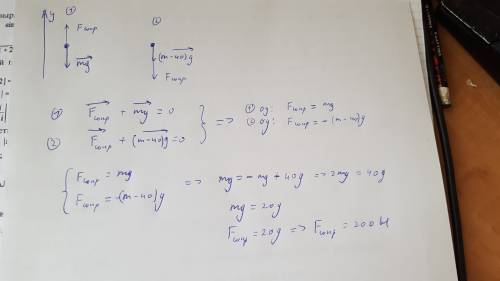 y ① ②
Fсопр
mg
(m-40)g
Fсопр
① Fсопр + mg = 0
② Fсопр + (m-40)g = 0
=> ① oy: Fсопр = mg
② oy: Fсопр = -(m-40)g
Fсопр = mg
Fсопр = -(m-40)g
=> mg = -mg + 40g => 2mg = 40g
mg = 20g
Fсопр = 20g => Fсопр = 200 H